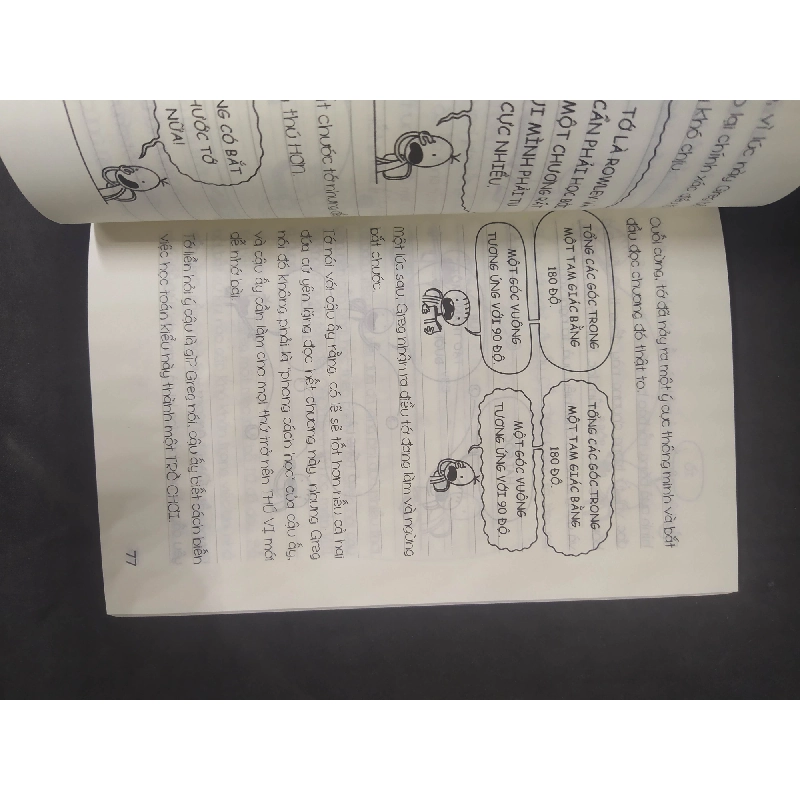 vì lúc này Greg
lại chính xác
khó chịu.
TỚ LÀ ROWLEY
CẦN PHẢI HỌC
MỘT CHƯƠNG
MÌNH PHẢI
CỰC NHIỀU.
chước tớ
thú HƠN.
CÓ BẮT
TỚ
NỮA!
Cuối cùng, tớ đã nảy ra một ý cực thông minh và bắt
đầu đọc chương đó thật to.
TỔNG CÁC GÓC TRONG
MỘT TAM GIÁC BẰNG
180 ĐỘ.
TỔNG CÁC GÓC TRONG
MỘT TAM GIÁC BẰNG
180 ĐỘ.
MỘT GÓC VUÔNG
TƯƠNG ỨNG VỚI 90 ĐỘ.
MỘT GÓC VUÔNG
TƯƠNG ỨNG VỚI 90 ĐỘ.
Một lúc sau, Greg nhận ra điều tớ đang làm và ngừng
bắt chước.
Tớ nói với cậu ấy rằng có lẽ sẽ tốt hơn nếu cả hai
đứa cứ yên lặng đọc hết chương này, nhưng Greg
nói đó không phải là "phong cách học" của cậu ấy,
và cậu ấy cần làm cho mọi thứ trở nên THÚ VỊ mới
dễ nhớ bài.
Tớ liền hỏi ý cậu là gì? Greg nói, cậu ấy biết cách biến
việc học toán kiểu này thành một TRÒ CHƠI.
77